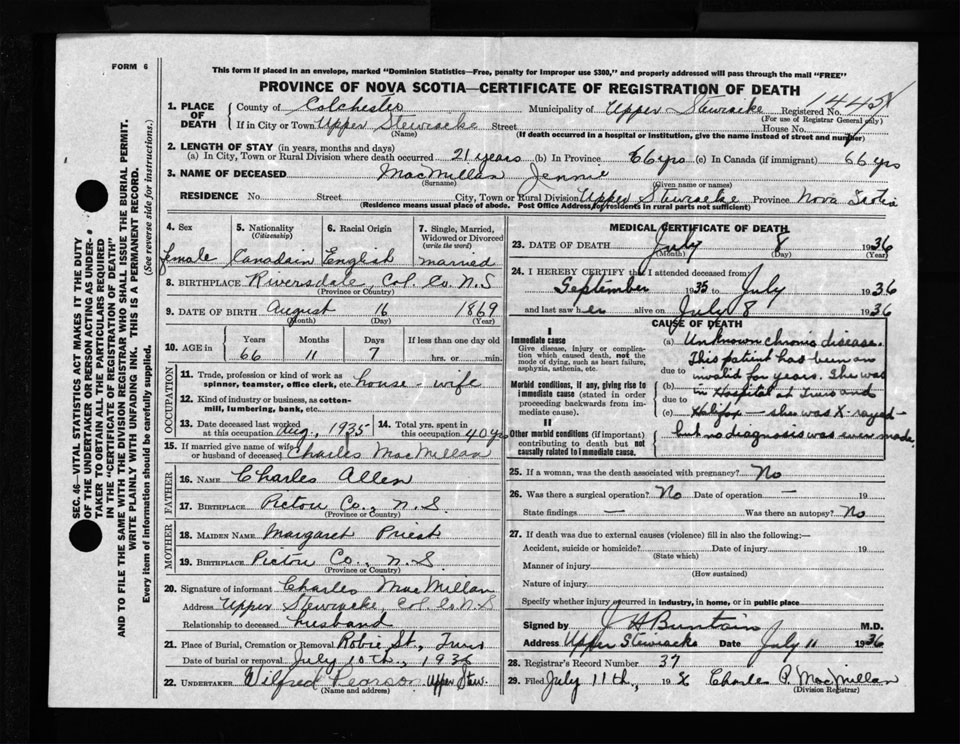 FORM 6
This form if placed in an envelope, marked "Dominion Statistics—Free, penalty for improper use $300," and properly addressed will pass through the mail "FREE"
PROVINCE OF NOVA SCOTIA—CERTIFICATE OF REGISTRATION OF DEATH
1. PLACE OF DEATH County of Colchester Municipality of Upper Stewiacke Registered No.
(For use of Registrar General only)
If in City or Town Upper Stewiacke Street House No.
(Name) (If death occurred in a hospital or institution, give the name instead of street and number)
2. LENGTH OF STAY (in years, months and days)
(a) In City, Town or Rural Division where death occurred 21 years (b) In Province 66 yrs (c) In Canada (if immigrant) 66 yrs
3. NAME OF DECEASED MacMillan Jennie
(Surname) (Given name or names)
RESIDENCE No. Street City, Town or Rural Division Upper Stewiacke Province Nova Scotia
(Residence means usual place of abode. Post Office Address for residents in rural parts not sufficient)
4. Sex 5. Nationality (Citizenship) 6. Racial Origin 7. Single, Married, Widowed or Divorced (write the word)
female Canadain English married
8. BIRTHPLACE Riversdale, Col. Co. N.S
(Province or Country)
9. DATE OF BIRTH August 16 1869
(Month) (Day) (Year)
10. AGE in Years Months Days If less than one day old
66 11 7 hrs. or min.
OCCUPATION
11. Trade, profession or kind of work as spinner, teamster, office clerk, etc. house-wife
12. Kind of industry or business, as cotton-mill, lumbering, bank, etc.
13. Date deceased last worked at this occupation Aug., 1935 14. Total yrs. spent in this occupation 40 yrs
15. If married give name of wife or husband of deceased Charles MacMillan
FATHER
16. NAME Charles Allen
17. BIRTHPLACE Pictou Co., N.S.
(Province or Country)
MOTHER
18. MAIDEN NAME Margaret Priest
19. BIRTHPLACE Pictou Co., N.S.
(Province or Country)
20. Signature of informant Charles MacMillan
Address Upper Stewiacke, Col. Co N.S
Relationship to deceased husband
21. Place of Burial, Cremation or Removal Robie St., Truro
Date of burial or removal July 10th., 1936
22. UNDERTAKER Wilfred Pearson Upper Stew.
(Name and address)
MEDICAL CERTIFICATE OF DEATH
23. DATE OF DEATH July 8 1936
(Month) (Day) (Year)
24. I HEREBY CERTIFY that I attended deceased from
September 1935 to July 1936
and last saw her alive on July 8 1936
CAUSE OF DEATH
I
Immediate cause
Give disease, injury or complication which caused death, not the mode of dying, such as heart failure, asphyxia, asthenia, etc.
Morbid conditions, if any, giving rise to immediate cause (stated in order proceeding backwards from immediate cause).
II
Other morbid conditions (if important) contributing to death but not causally related to immediate cause.
(a) Unknown chronic disease.
due to This patient has been an
(b) invalid for years. She was
due to in Hospital at Truro and
(c) Halifax – she was X-rayed –
but no diagnosis was ever made.
25. If a woman, was the death associated with pregnancy? No
26. Was there a surgical operation? No Date of operation — 19
State findings — Was there an autopsy? No
27. If death was due to external causes (violence) fill in also the following:—
Accident, suicide or homicide? Date of injury 19
(State which)
Manner of injury
(How sustained)
Nature of injury
Specify whether injury occurred in industry, in home, or in public place
Signed by J H Buntain M.D.
Address Upper Stewiacke Date July 11 1936
28. Registrar's Record Number 37
29. Filed July 11th., 19 Charles P. MacMillan
(Division Registrar)
SEC. 46—VITAL STATISTICS ACT MAKES IT THE DUTY
OF THE UNDERTAKER OR PERSON ACTING AS UNDER-
TAKER TO OBTAIN ALL THE PARTICULARS REQUIRED
IN THE "CERTIFICATE OF REGISTRATION OF DEATH"
AND TO FILE THE SAME WITH THE DIVISION REGISTRAR WHO SHALL ISSUE THE BURIAL PERMIT.
WRITE PLAINLY WITH UNFADING INK. THIS IS A PERMANENT RECORD.
Every item of information should be carefully supplied. (See reverse side for instructions.)